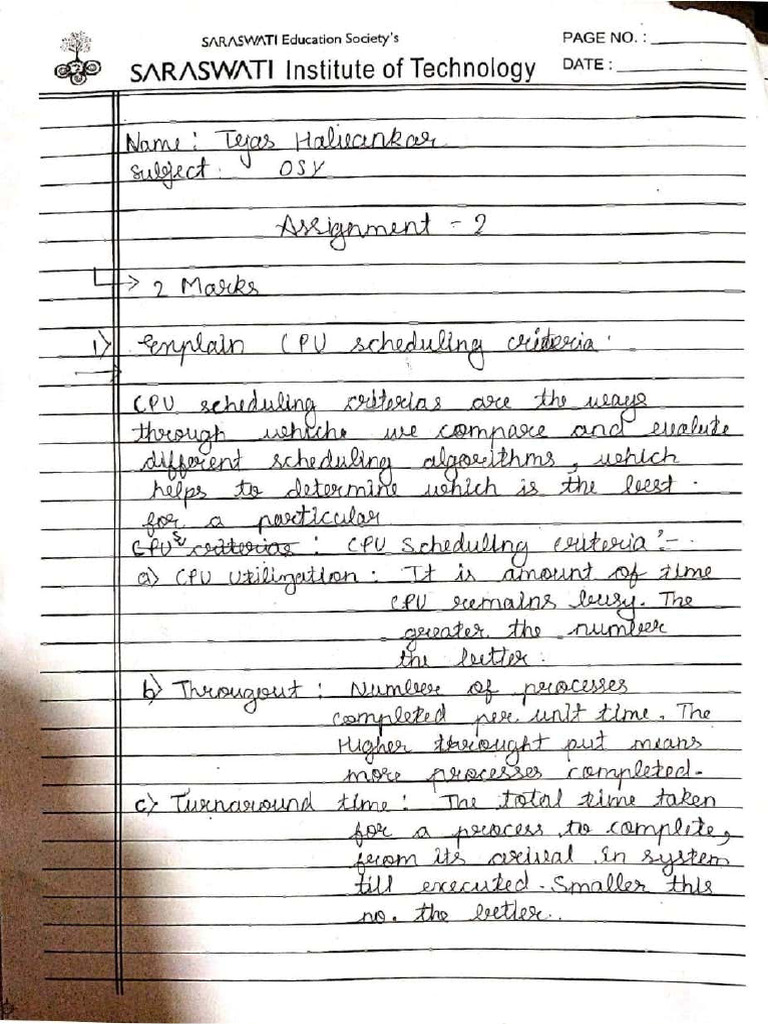 SARASWATI Education Society's
SARASWATI Institute of Technology
PAGE NO. :
DATE :
Name : Tejas Halwankar
Subject : OSY
Assignment - 2
→ 2 Marks
1) Explain CPU scheduling criteria.
CPU scheduling criterias are the ways
through which we compare and evalute
different scheduling algorithms, which
helps to determine which is the best
for a particular
CPU's criterias : CPU Scheduling criteria :-
a) CPU Utilization : It is amount of time
CPU remains busy. The
greater the number
the better.
b) Througout : Number of processes
completed per unit time. The
Higher throught put means
more processes completed.
c) Turnaround time : The total time taken
for a process to complete,
from its arival in system
till executed. Smaller this
no. the better..